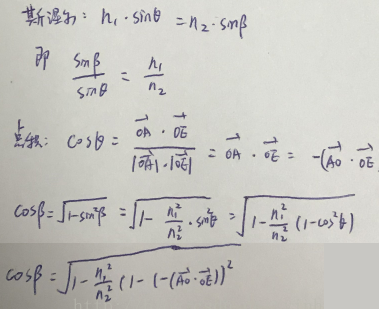 斯涅尔: n₁·sinθ = n₂·sinβ
即 sinβ/sinθ = n₁/n₂
点积: cosθ = (→OA · →OE)/(|→OA|·|→OE|) = →OA · →OE = -(→AO · →OE
cosβ = √(1-sin²β) = √(1 - n₁²/n₂² · sin²θ) = √(1 - n₁²/n₂² (1-cos²θ))
cosβ = √(1 - n₁²/n₂² (1 - (-(→AO · →OE))²